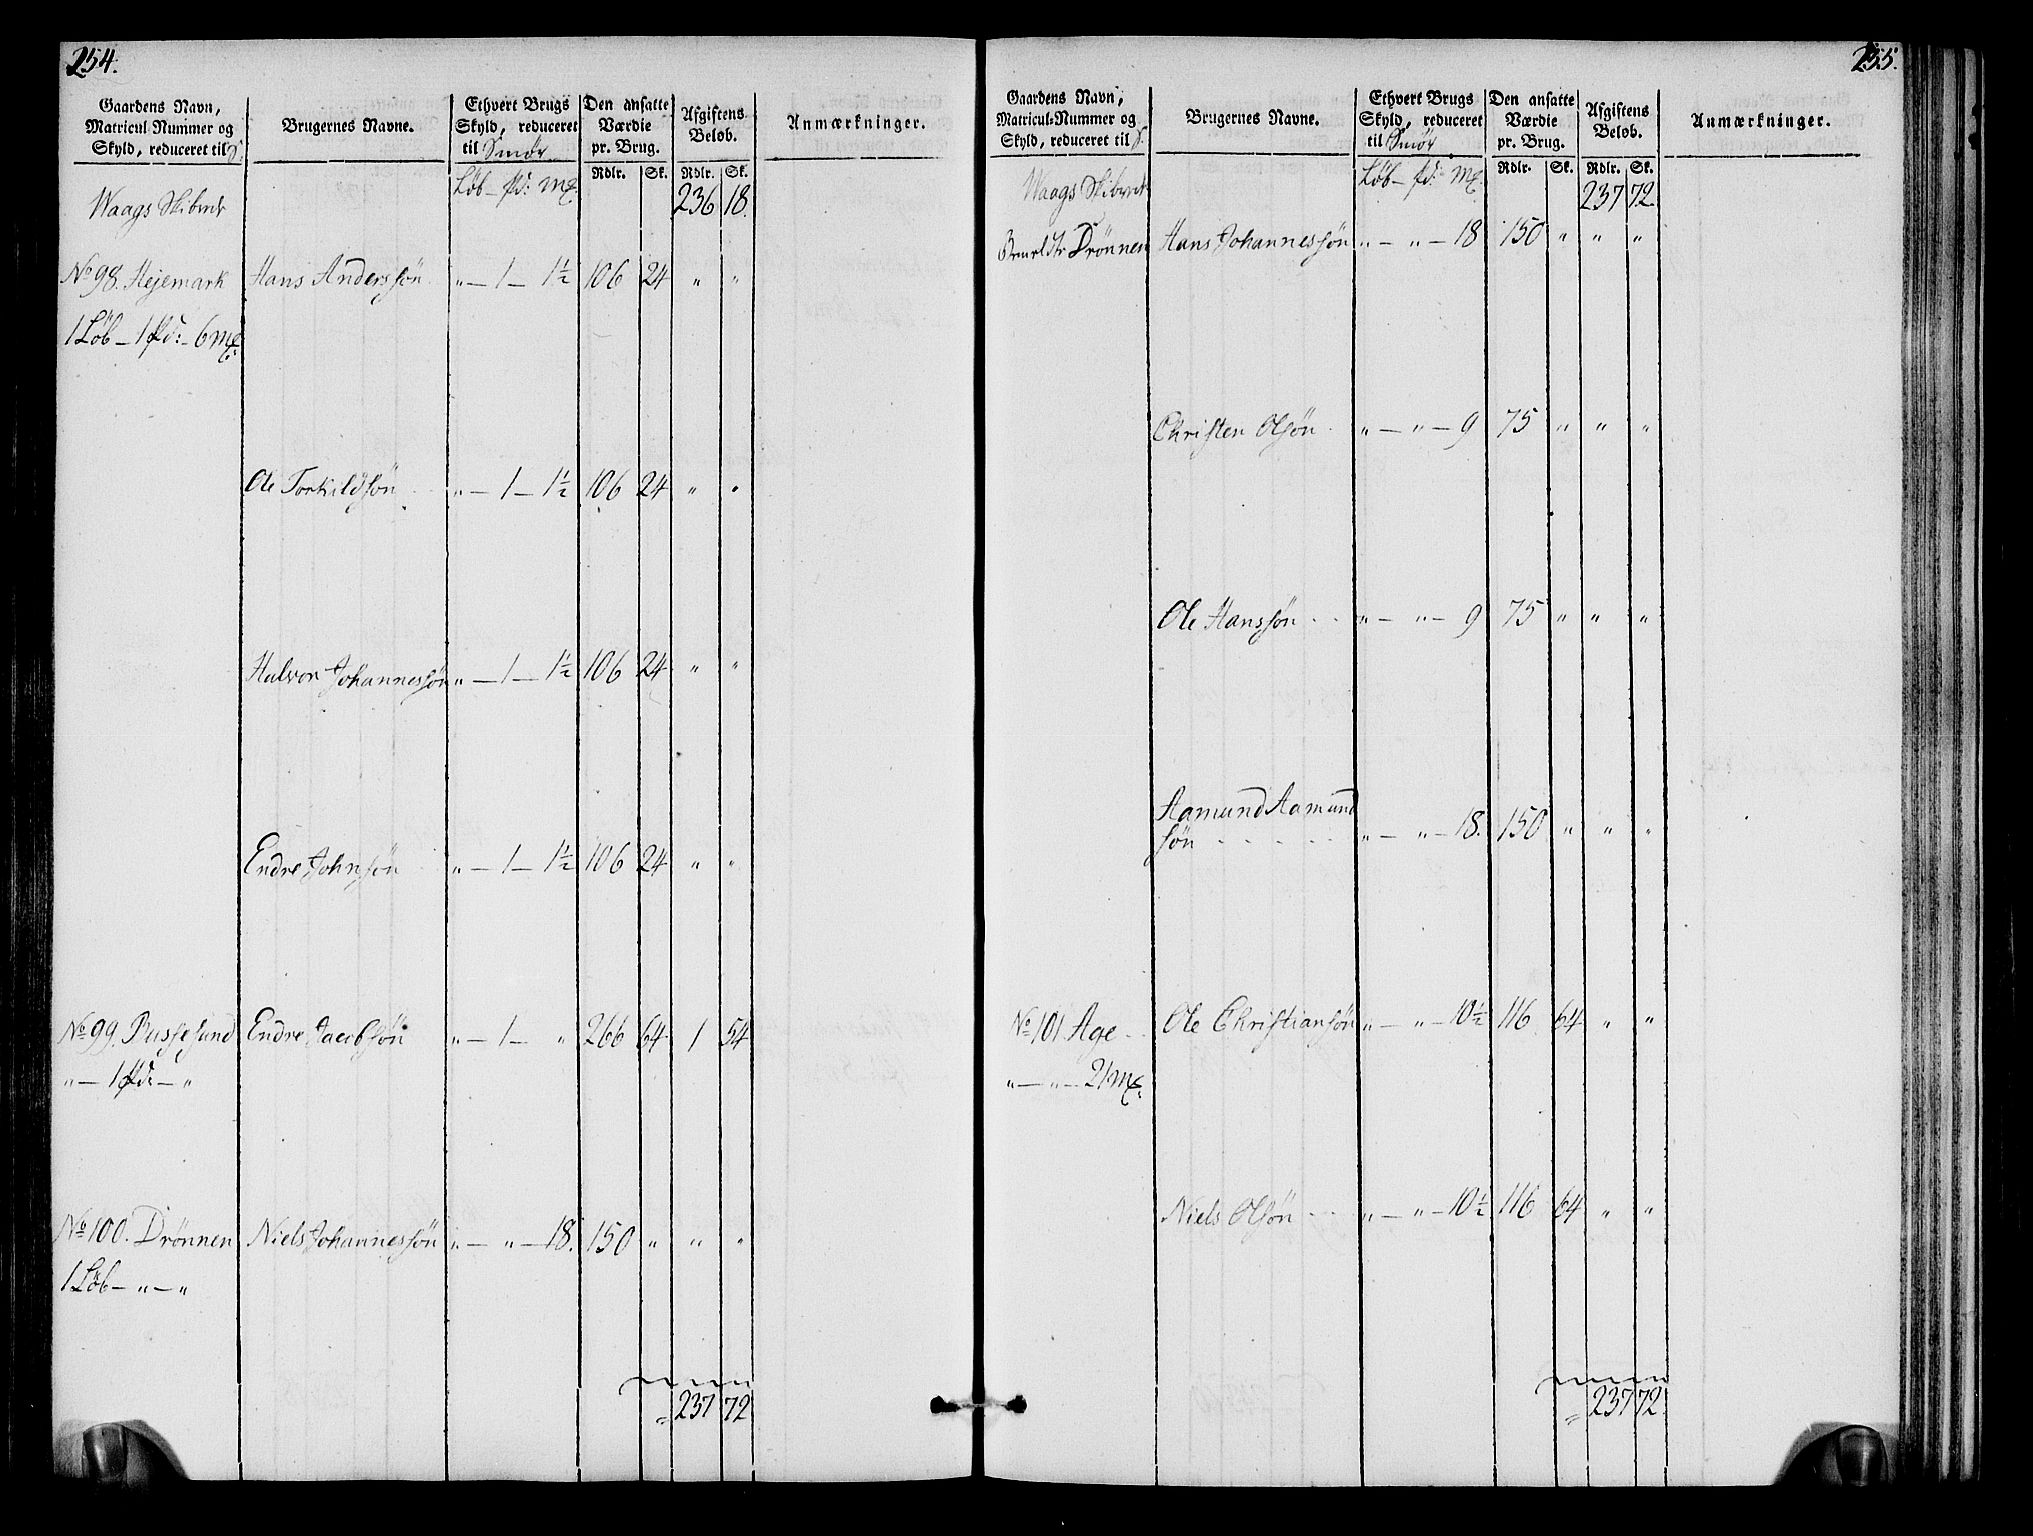 254.
Gaardens Navn, Matricul-Nummer og Skyld, reduceret til S. | Brugernes Navne. | Ethvert Brugs Skyld, reduceret til Smör | Den ansatte Værdie pr. Brug. | Afgiftens Beløb. | Anmærkninger.
Löb – pd: mꝝ. | Rdlr. | Sk. | Rdlr. | Sk.
Waags Skibrede 236 18.
No 98. Hejemark Hans Anderssøn. " – 1 – 1½ 106 24 " "
1 Löb – 1 pd: – 6 mꝝ:
Ole Torkildssøn " – 1 – 1½ 106 24 " "
Halvor Johannessøn " – 1 – 1½ 106 24 " "
Endre Johnsøn " – 1 – 1½ 106 24 " "
No 99. Bussesund Endre Jacobsøn " – 1 – " 266 64 1 54
" – 1 pd: – "
No 100. Drönnen Niels Johannessøn " – " – 18. 150 " " "
1 Löb – " – "
= 237 72
255.
Gaardens Navn, Matricul-Nummer og Skyld, reduceret til S. | Brugernes Navne. | Ethvert Brugs Skyld, reduceret til Smör | Den ansatte Værdie pr. Brug. | Afgiftens Beløb. | Anmærkninger.
Löb – pd: mꝝ. | Rdlr. | Sk. | Rdlr. | Sk.
Waags Skibrede 237 72.
Drönnen Hans Johannessøn " – " – 18 150 " " "
Christen Olsøn. " – " – 9 75 " " "
Ole Hanssøn " – " – 9 75 " " "
Aamund Aamund
søn " – " – 18. 150 " " "
No 101 Age Ole Christiansøn " – " – 10½ 116 64 " "
" – " – 21 mꝝ:
Niels Olsøn " – " – 10½ 116 64 " "
= 237 72.